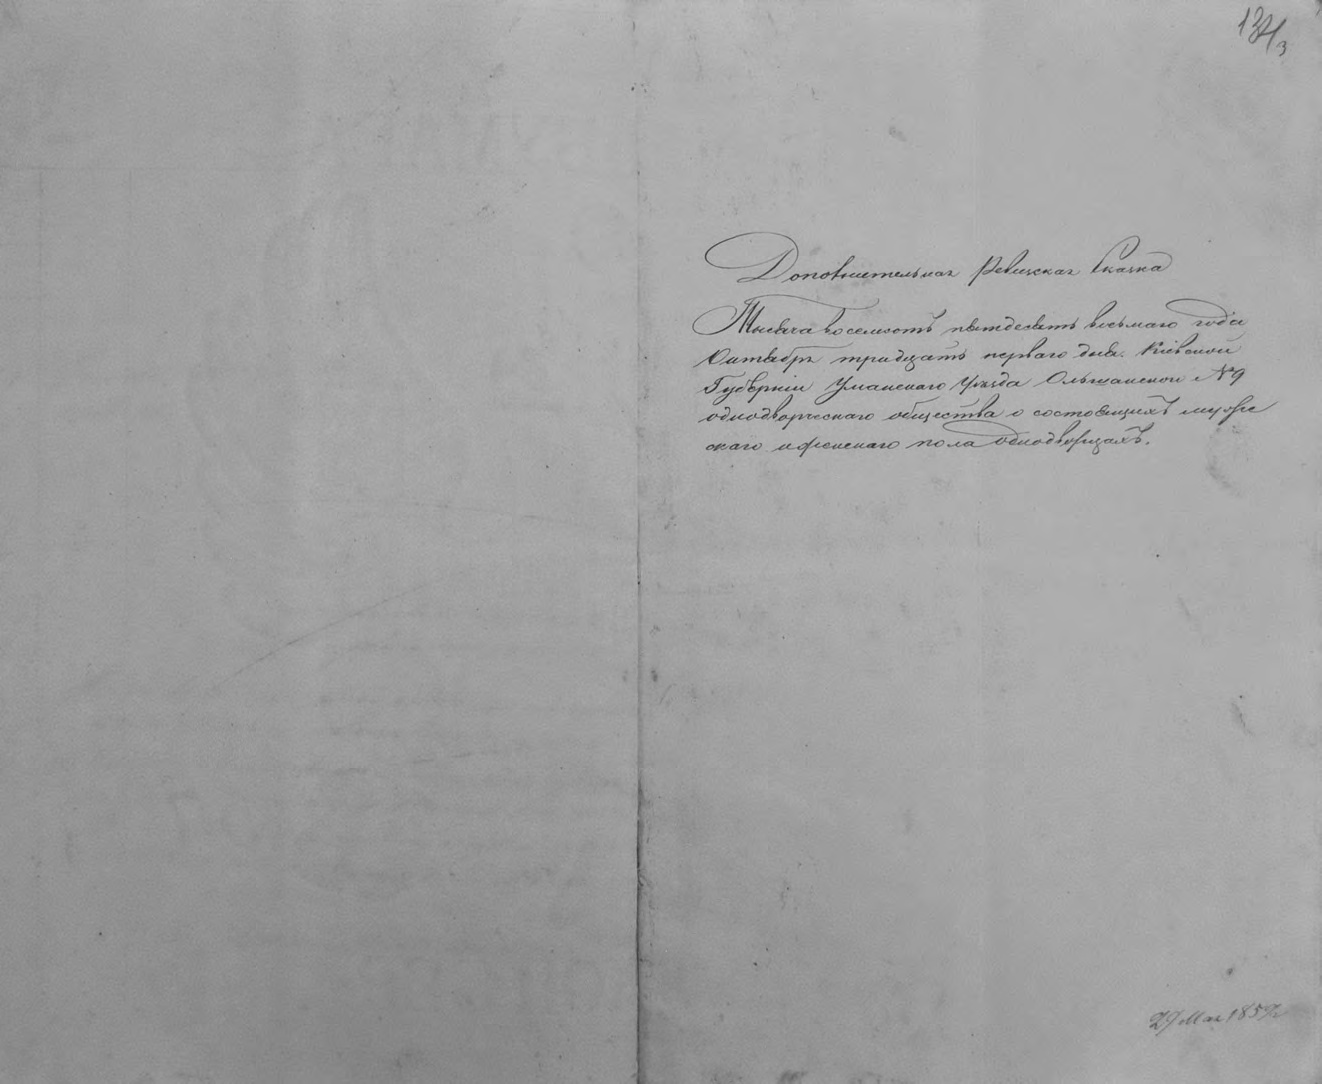 Дополнительная Ревизская Сказка
Тысяча восемьсотъ пятдесятъ восьмаго года
Октября тридцать перваго дня. Кіевской
Губерніи Уманскаго Уезда Ольшанской № 9
однодворческаго общества о состоящихъ муже
скаго и женскаго пола однодворцахъ.
29 Мая 185